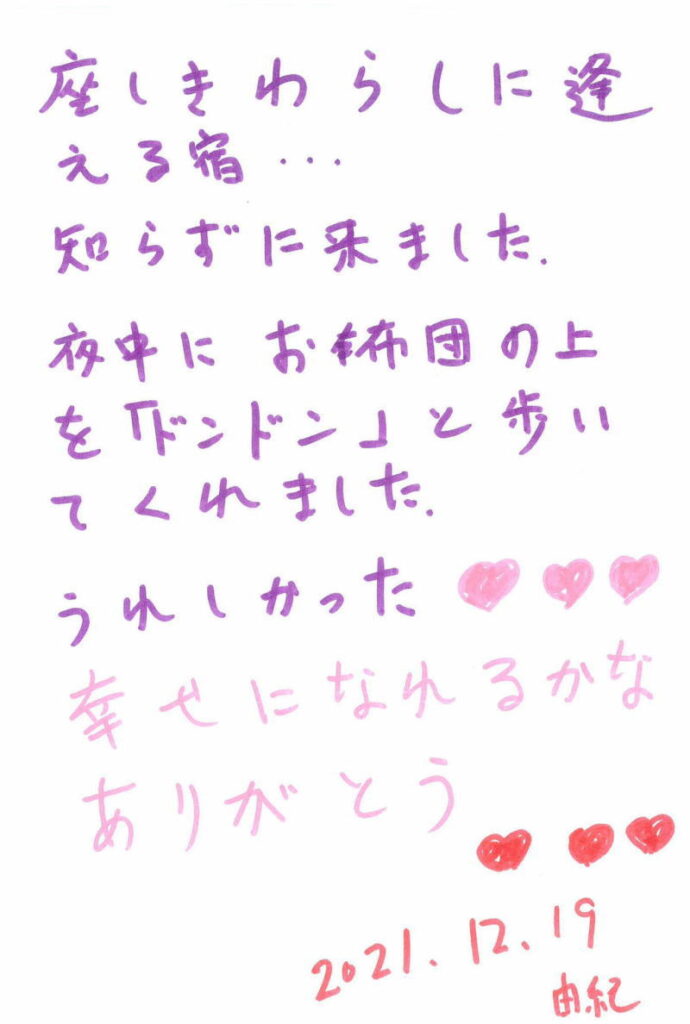 座しきわらしに逢
える宿...
知らずに来ました.
夜中に お布団の上
を「ドンドン」と歩い
てくれました.
うれしかった
幸せになれるかな
ありがとう
2021.12.19
由紀